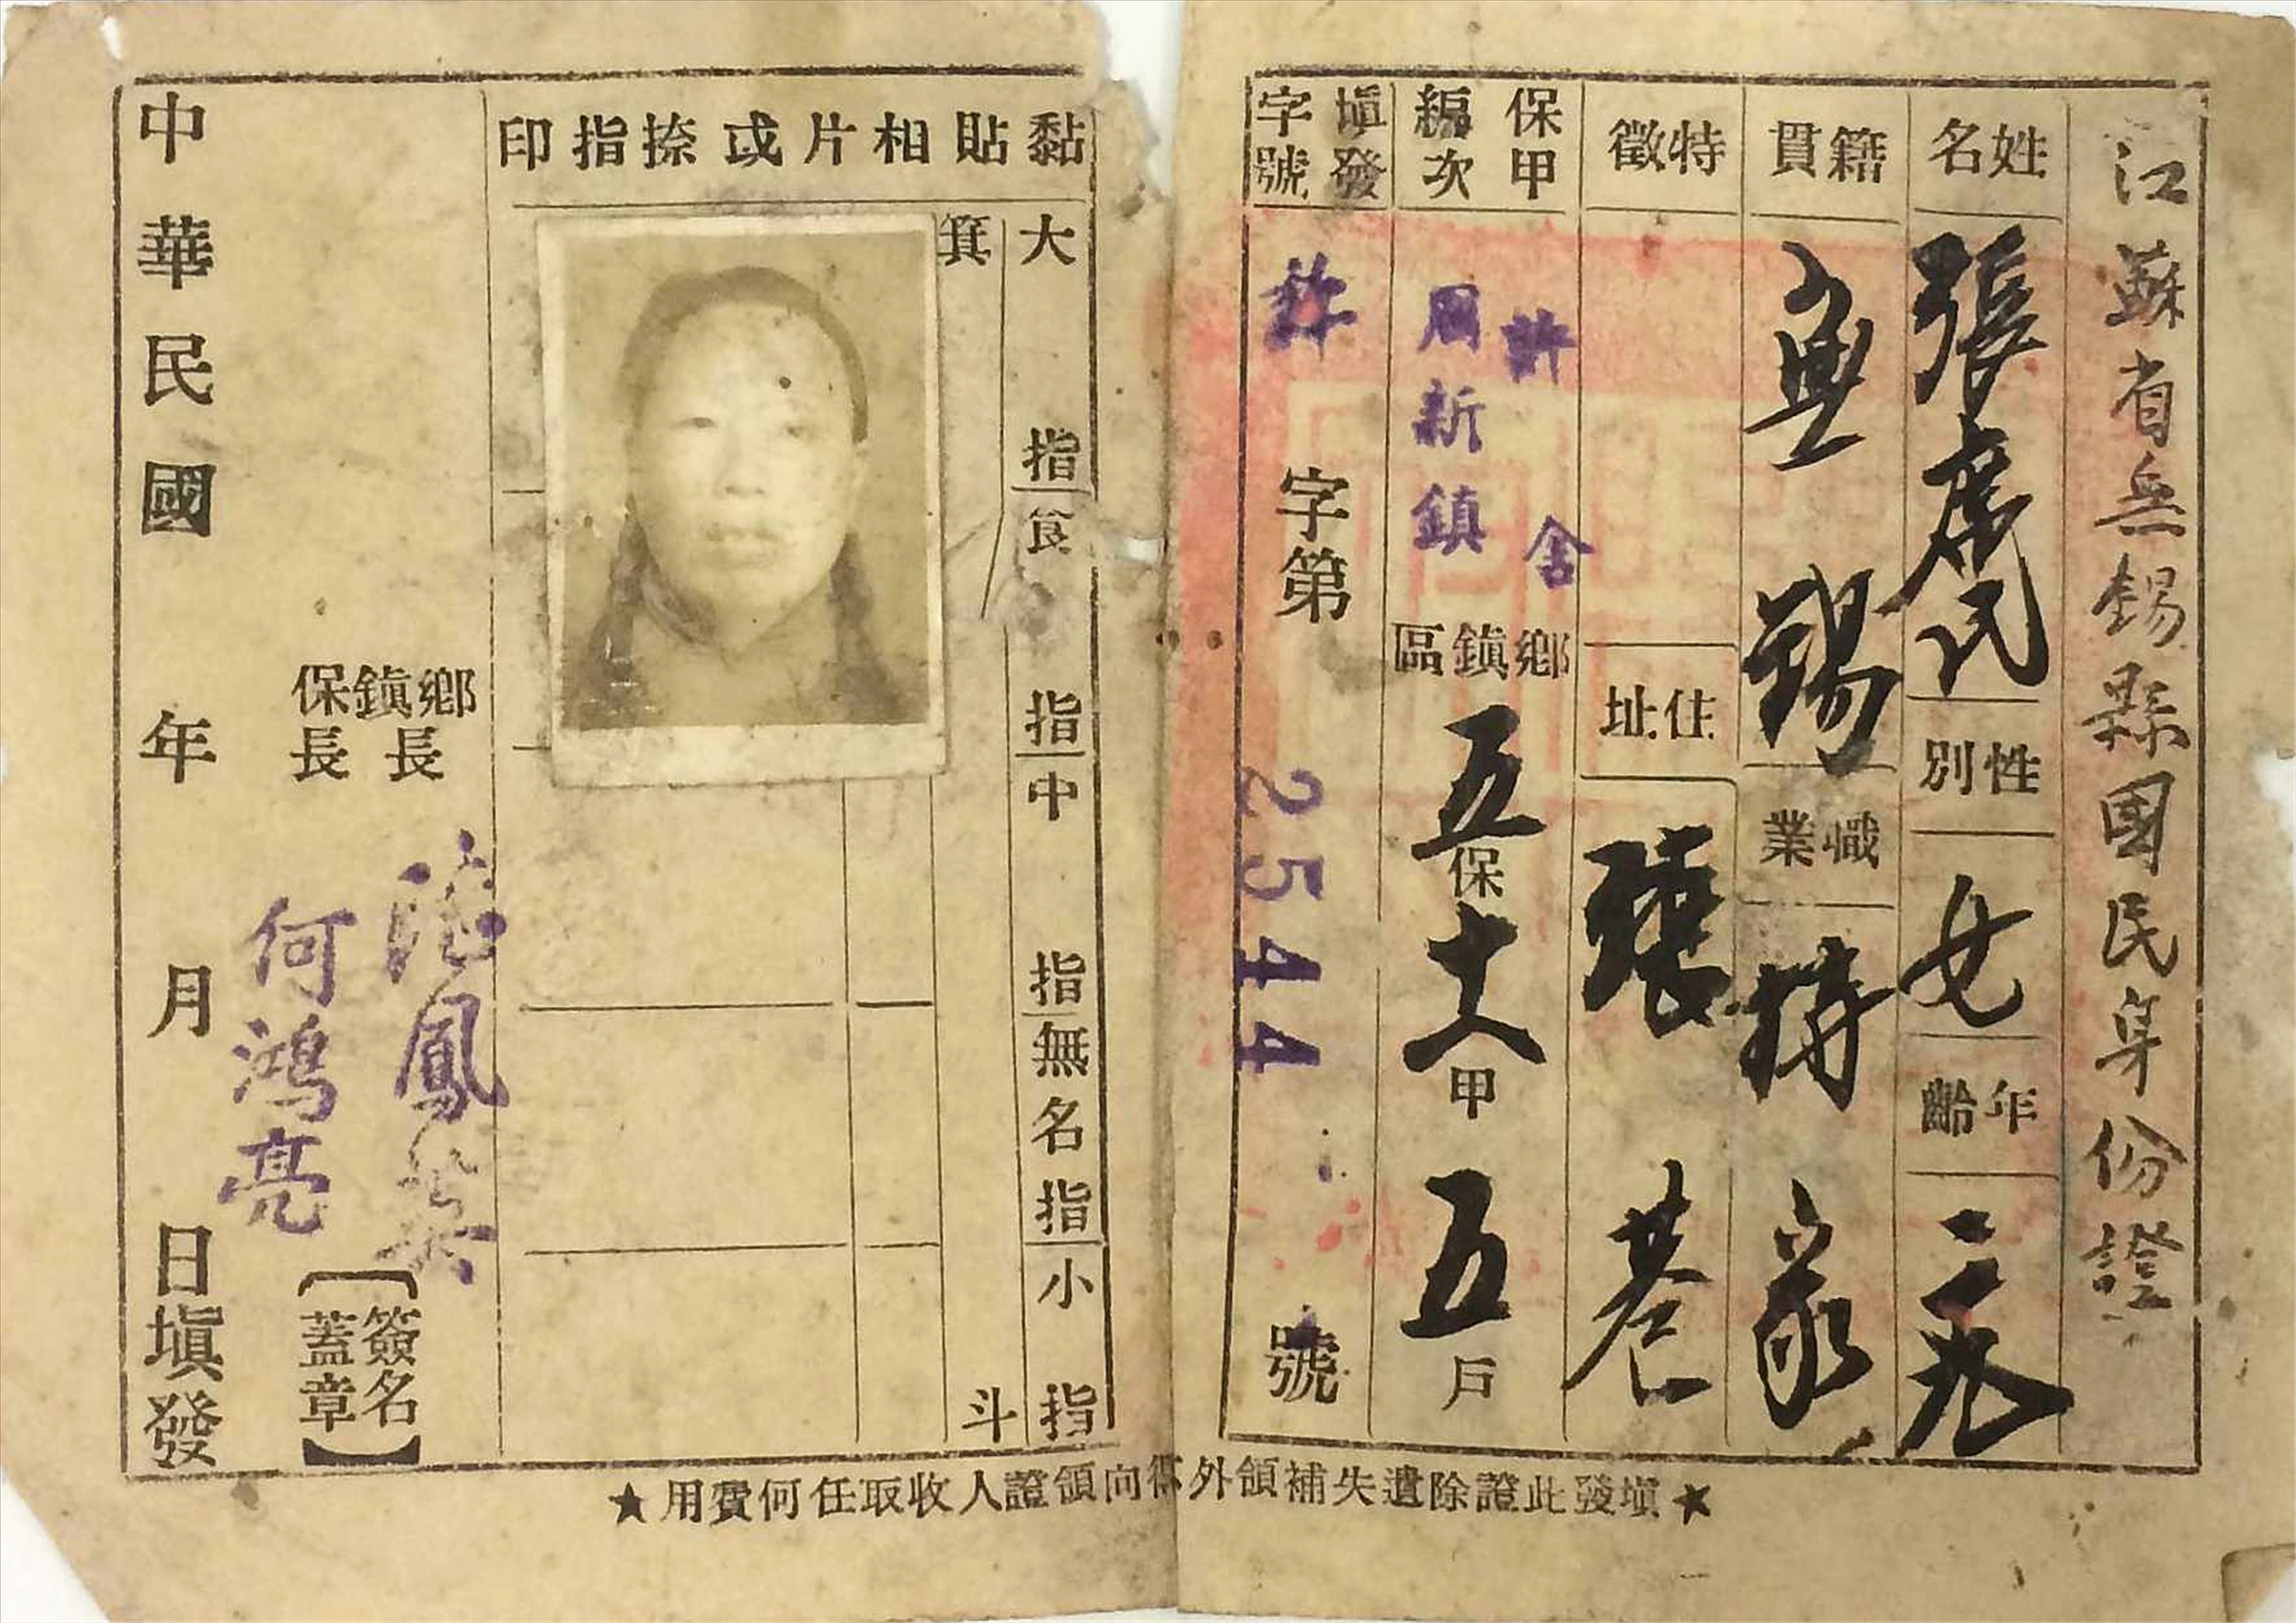 江蘇省無錫縣國民身份證
姓名
張虞氏
性別
女
年齡
籍貫
無錫
職業
持家
特徵
住址
張巷
保甲編次
許舍
周新鎮
鄉鎮區
五保十八甲五戶
填發字號
許字第2544號
黏貼相片或捺指印
大指
食指
中指
無名指
小指
箕
斗
鄉鎮長
鳳
保長
何鴻亮
【簽名蓋章】
中華民國 年 月 日填發
★填發此證除遺失補領外不得向領證人收取任何費用★